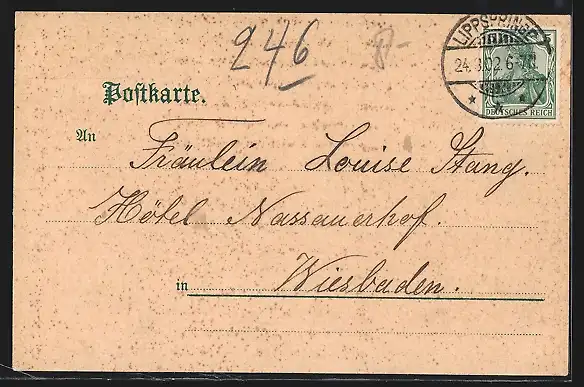 246
LIPPSPRINGE
24. 02. 6-7N
DEUTSCHES REICH
Postkarte.
An
Fräulein Louise Stang.
Hôtel Nassauerhof.
in Wiesbaden.